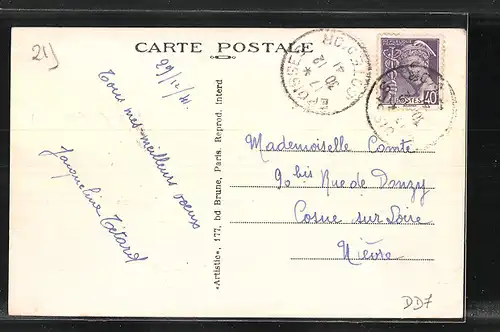 21)
CARTE POSTALE
29/12/41.
Tous mes meilleurs voeux
Jacqueline Tétard
«Artistic», 177, bd Brune, Paris. Reprod. Interd
EPOISSES
17 *
30 -12
41
COTE-D'OR
POSTES 40
Mademoiselle Comte
90 bis Rue de Donzy
Cosne sur Loire
Nièvre
DD7